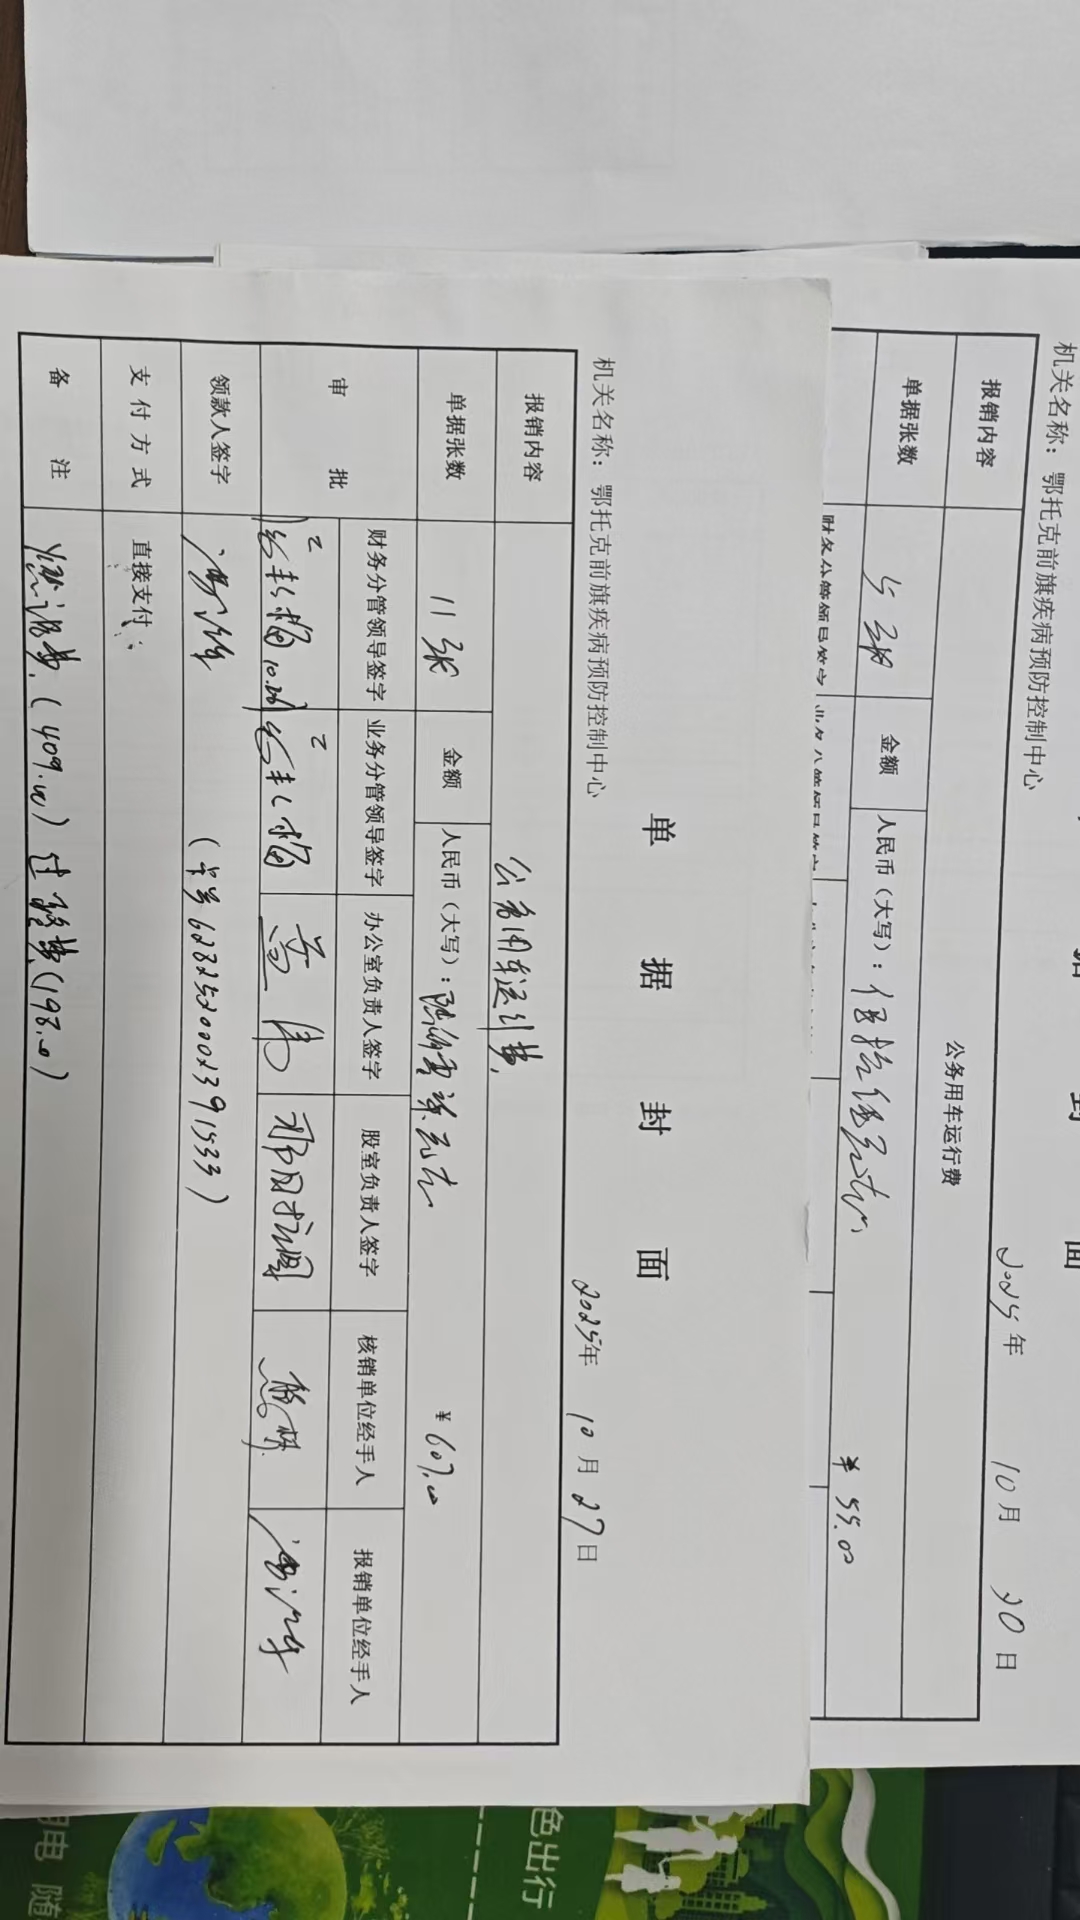 单据封面
机关名称：鄂托克前旗疾病预防控制中心 2025年 10月 27日
报销内容 公务用车运行费
单据张数 11张 金额 人民币（大写）：陆佰零柒元整 ¥607.00
审批 财务分管领导签字 业务分管领导签字 办公室负责人签字 股室负责人签字 核销单位经手人 报销单位经手人
10.28
领款人签字 （卡号6232520002391533）
支付方式 直接支付：
备注 燃油费（409.00）过路费（198.0）
据封面
机关名称：鄂托克前旗疾病预防控制中心 2025年 10月 20日
报销内容 公务用车运行费
单据张数 5张 金额 人民币（大写）：伍拾伍元 ¥55.00
色出行
电 随